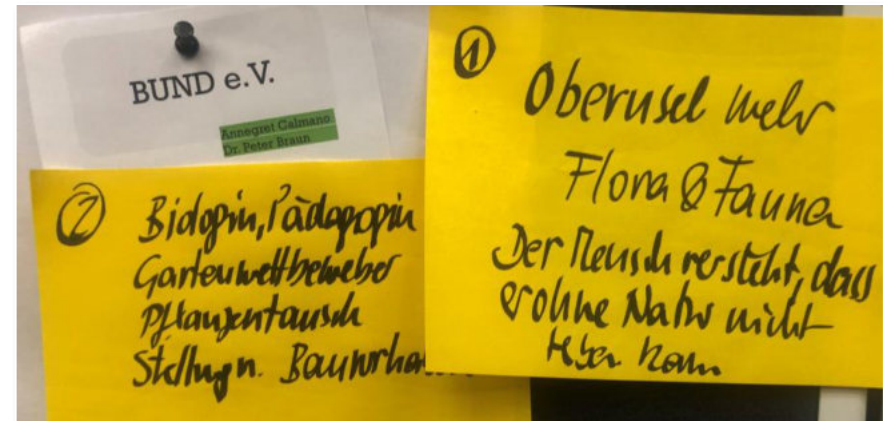 BUND e.V.
Annegret Calmano
Dr. Peter Braun
②
Biologin, Pädagogin
Gartenwettbewerber
Pflanzentausch
Stellungn.
①
Oberusel mehr
Flora & Fauna
Der Mensch versteht, dass
er ohne Natur nicht
leben kann